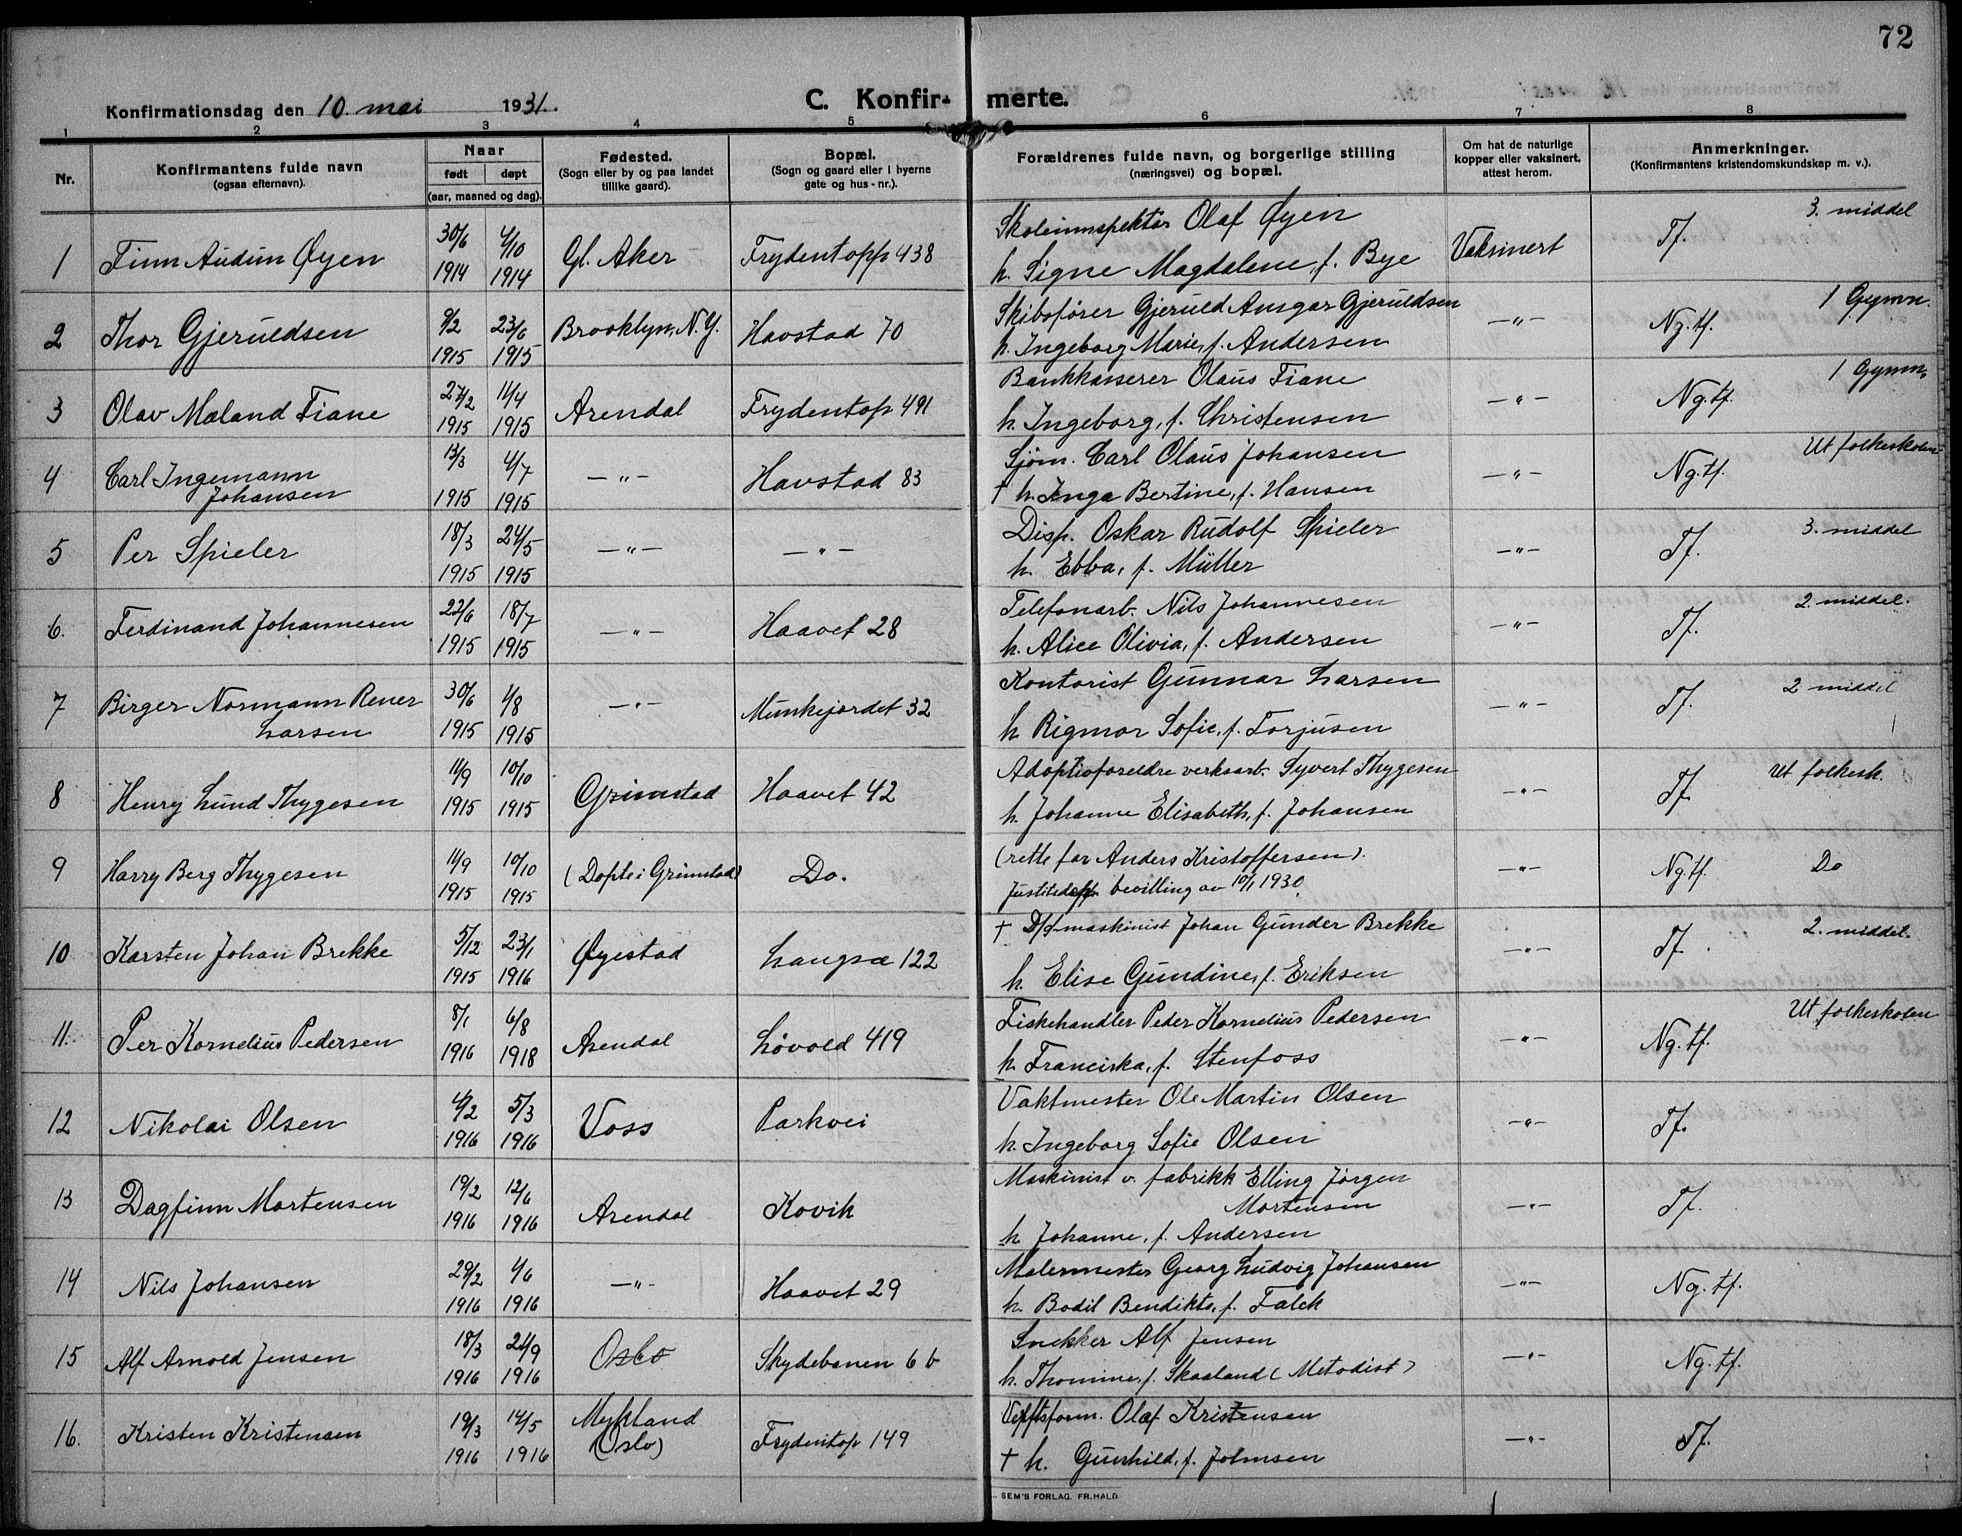 72
Konfirmationsdag den 10. mai 1931.
C. Konfir- merte.
1 2 3 4 5 6 7 8
Nr.
Konfirmantens fulde navn
(ogsaa efternavn).
Naar
født døpt
(aar, maaned og dag).
Fødested.
(Sogn eller by og paa landet
tillike gaard).
Bopæl.
(Sogn og gaard eller i byerne
gate og hus-nr.).
Forældrenes fulde navn, og borgerlige stilling
(næringsvei) og bopæl.
Om hat de naturlige
kopper eller vaksinert,
attest herom.
Anmerkninger.
(Konfirmantens kristendomskundskap m. v.).
1 Finn Audun Øyen 30/6 1914 4/10 1914 Gl. Aker Frydentopp 438 Skoleinnspektør Olaf Øyen
h. Signe Magdalene, f. Bye Vaksinert Tf. 3. middel
2 Thor Gjeruldsen 9/2 1915 23/6 1915 Brooklyn, N.Y. Havstad 70 Skibsfører Gjeruld Ansgar Gjeruldsen
h. Ingeborg Marie, f. Andersen —"— Ng. tf. 1 Gymn.
3 Olav Maland Fiane 27/2 1915 11/4 1915 Arendal Frydentop 491 Bankkasserer Olaus Fiane
h. Ingeborg, f. Christensen —"— Ng. tf. 1 Gymn.
4 Carl Ingemann
Johansen 13/3 1915 4/7 1915 —"— Havstad 83 Sjøm. Carl Olaus Johansen
† h. Inga Bertine, f. Hansen —"— Ng. tf. Ut folkeskolen
5 Per Spieler 18/3 1915 24/5 1915 —"— —"— Disp. Oskar Rudolf Spieler
h. Ebba, f. Müller —"— Tf. 3. middel
6. Ferdinand Johannesen 22/6 1915 18/7 1915 —"— Haavet 28 Telefonarb. Nils Johannesen
h. Alice Olivia, f. Andersen —"— Tf. 2. middel.
7 Birger Normann Rener
Larsen 30/6 1915 1/8 1915 —"— Munkejordet 32 Kontorist Gunnar Larsen
h. Rigmor Sofie, f. Torjusen —"— Tf. 2 middel
8 Henry Lund Thygesen 11/9 1915 10/10 1915 Grimstad Haavet 42 Adoptivforeldre verksarb. Syvert Thygesen
h. Johanne Elisabeth, f. Johansen —"— Tf. Ut folkesk.
9 Harry Berg Thygesen 11/9 1915 10/10 1915 (Døpte i Grimstad) Do. (rette far Anders Kristoffersen).
bevilling av 10/1 1930. —"— Ng. tf. Do
10 Karsten Johan Brekke 5/12 1915 23/1 1916 Øyestad Langsæ 122 † D/s maskinist Johan Gunder Brekke
h. Elise Gundine, f. Eriksen —"— Tf. 2. middel.
11. Per Kornelius Pedersen 8/1 1916 6/8 1918 Arendal Løvold 419 Fiskehandler Peder Kornelius Pedersen
h. Franciska, f. Stenfoss —"— Ng. tf. Ut folkeskolen
12 Nikolai Olsen 4/2 1916 5/3 1916 Voss Parkvei Vaktmester Ole Martin Olsen
h. Ingeborg Sofie Olsen —"— Tf.
13 Dagfinn Mortensen 19/2 1916 12/6 1916 Arendal Kovik Maskinist v. fabrikk Elling Jørgen
Mortensen
h. Johanne, f. Andersen —"— Tf.
14 Nils Johansen 29/2 1916 4/6 1916 —"— Haavet 29 Malermester Georg Ludvig Johansen
h. Bodil Bendikta, f. Falch —"— Ng. tf.
15 Alf Arnold Jensen 18/3 1916 24/9 1916 Oslo Skydebanen 6 b Snekker Alf Jensen
h. Thomine, f. Skaaland (Metodist) —"— Ng. tf.
16. Kristen Kristensen 19/3 1916 14/5 1916 Mykland
(Oslo) Frydentop 149 Olaf Kristensen
† h. Gunhild, f. Johnsen —"— Tf.
SEM'S FORLAG. FR.HALD.